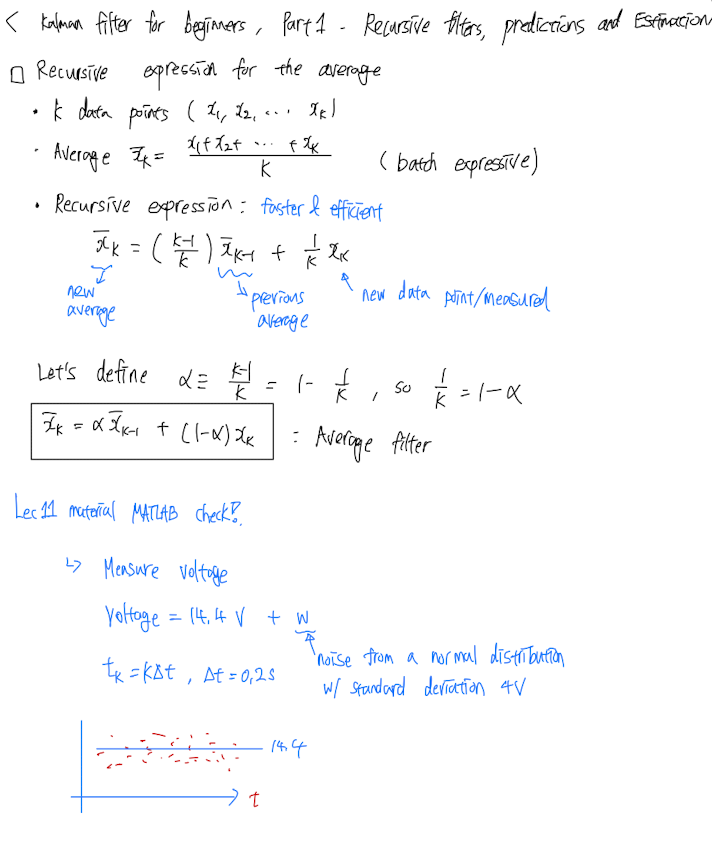 < Kalman filter for beginners, Part 1 - Recursive filters, predictions and Estimation
□ Recursive expression for the average
• k data points ( x₁, x₂, ... xₖ)
• Average x̄ₖ = (x₁+x₂+ ... +xₖ)/k (batch expressive)
• Recursive expression : faster & efficient
x̄ₖ = ( (k-1)/k ) x̄ₖ₋₁ + (1/k) xₖ
new average
previous average
new data point/measured
Let's define α ≡ (k-1)/k = 1 - 1/k , so 1/k = 1-α
x̄ₖ = α x̄ₖ₋₁ + (1-α) xₖ : Average filter
Lec 11 material MATLAB check!.
↳ Measure voltage
Voltage = 14.4 V + w
noise from a normal distribution
w/ standard deviation 4V
tₖ = kΔt , Δt = 0.2s
14.4
t